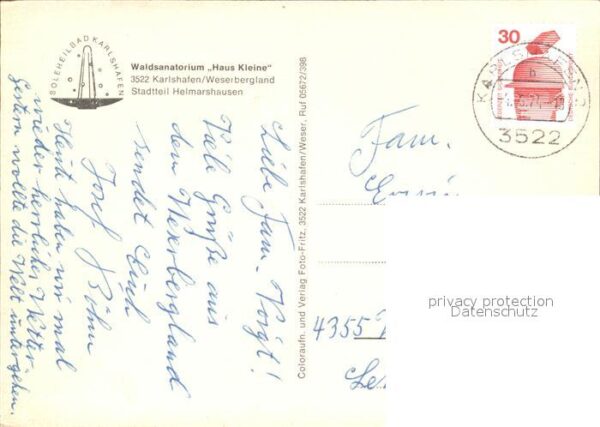 SOLEHEILBAD KARLSHAFEN
Waldsanatorium „Haus Kleine"
3522 Karlshafen/Weserbergland
Stadtteil Helmarshausen
Liebe Fam. Voigt!
Viele Grüße aus
dem Weserbergland
sendet Euch
Josef Böhm
Heute haben wir mal
wieder herrliches Wetter.
Gestern wollte die Welt untergehen.
Coloraufn. und Verlag Foto-Fritz, 3522 Karlshafen/Weser, Ruf 05672/398
30
3522
Fam.
4355
privacy protection
Datenschutz